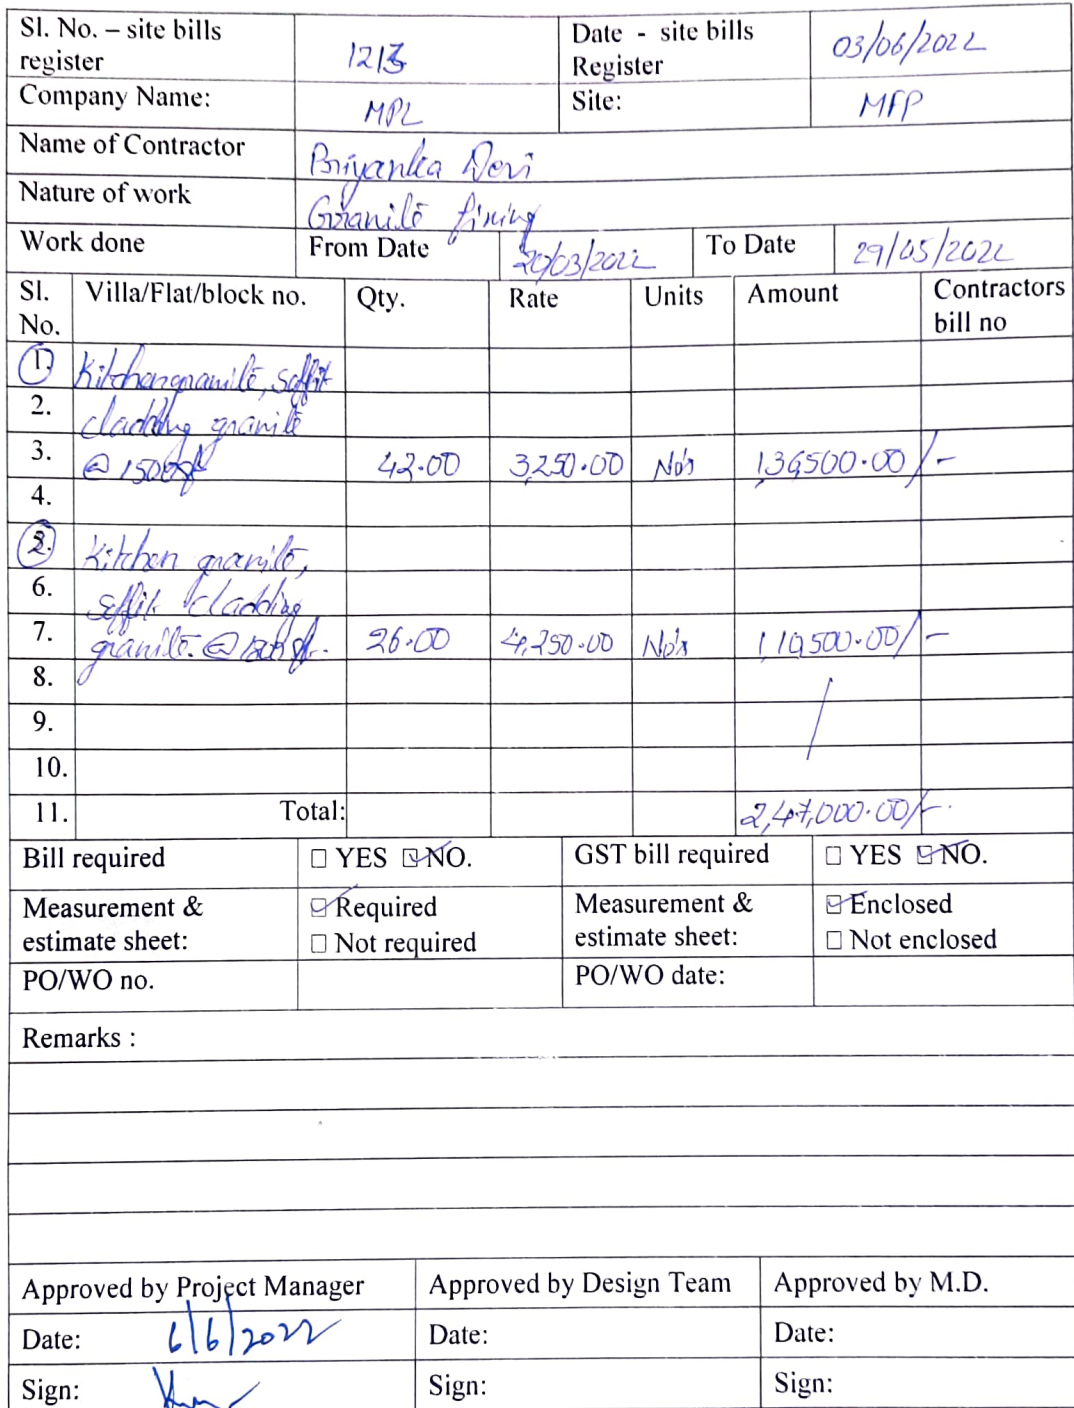 Sl. No. – site bills register 1213 Date - site bills Register 03/06/2022
Company Name: MPL Site: MFP
Name of Contractor Priyanka Devi
Nature of work Granite fixing
Work done From Date 20/03/2022 To Date 29/05/2022
Sl. No. Villa/Flat/block no. Qty. Rate Units Amount Contractors bill no
1. Kitchen granite, soffit
2. cladding granite
3. @ 1500 sft 42.00 3,250.00 No's 1,36,500.00/-
4.
2. Kitchen granite,
6. soffit cladding
7. granite. @ sft. 26.00 4,250.00 No's 1,10,500.00/-
8.
9.
10.
11. Total: 2,47,000.00/-
Bill required □ YES ☑ NO. GST bill required □ YES ☑ NO.
Measurement & estimate sheet: ☑ Required □ Not required Measurement & estimate sheet: ☑ Enclosed □ Not enclosed
PO/WO no. PO/WO date:
Remarks :
Approved by Project Manager Approved by Design Team Approved by M.D.
Date: 6/6/2022 Date: Date:
Sign: Sign: Sign: